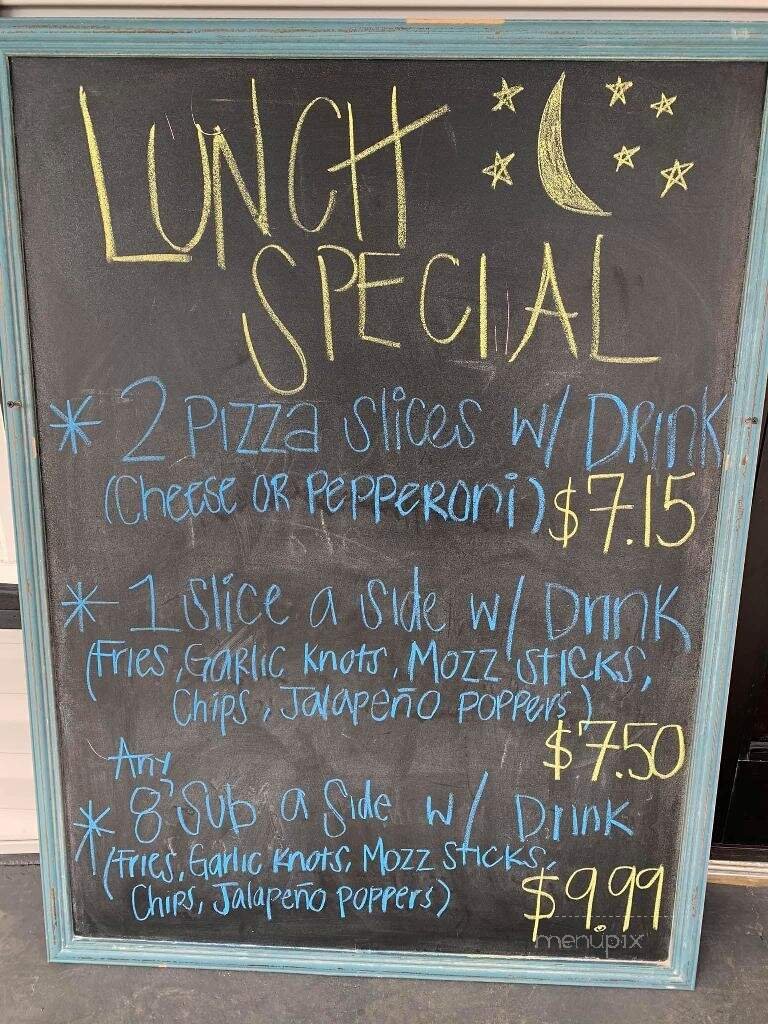 LUNCH
SPECIAL
* 2 Pizza Slices w/ DRink
(Cheese OR Pepperoni) $7.15
* 1 Slice a Side w/ Drink
(Fries, Garlic Knots, Mozz Sticks,
Chips, Jalapeño Poppers)
$7.50
Any
* 8" Sub a Side w/ Drink
(Fries, Garlic Knots, Mozz Sticks,
Chips, Jalapeño Poppers)
$9.99
menupix